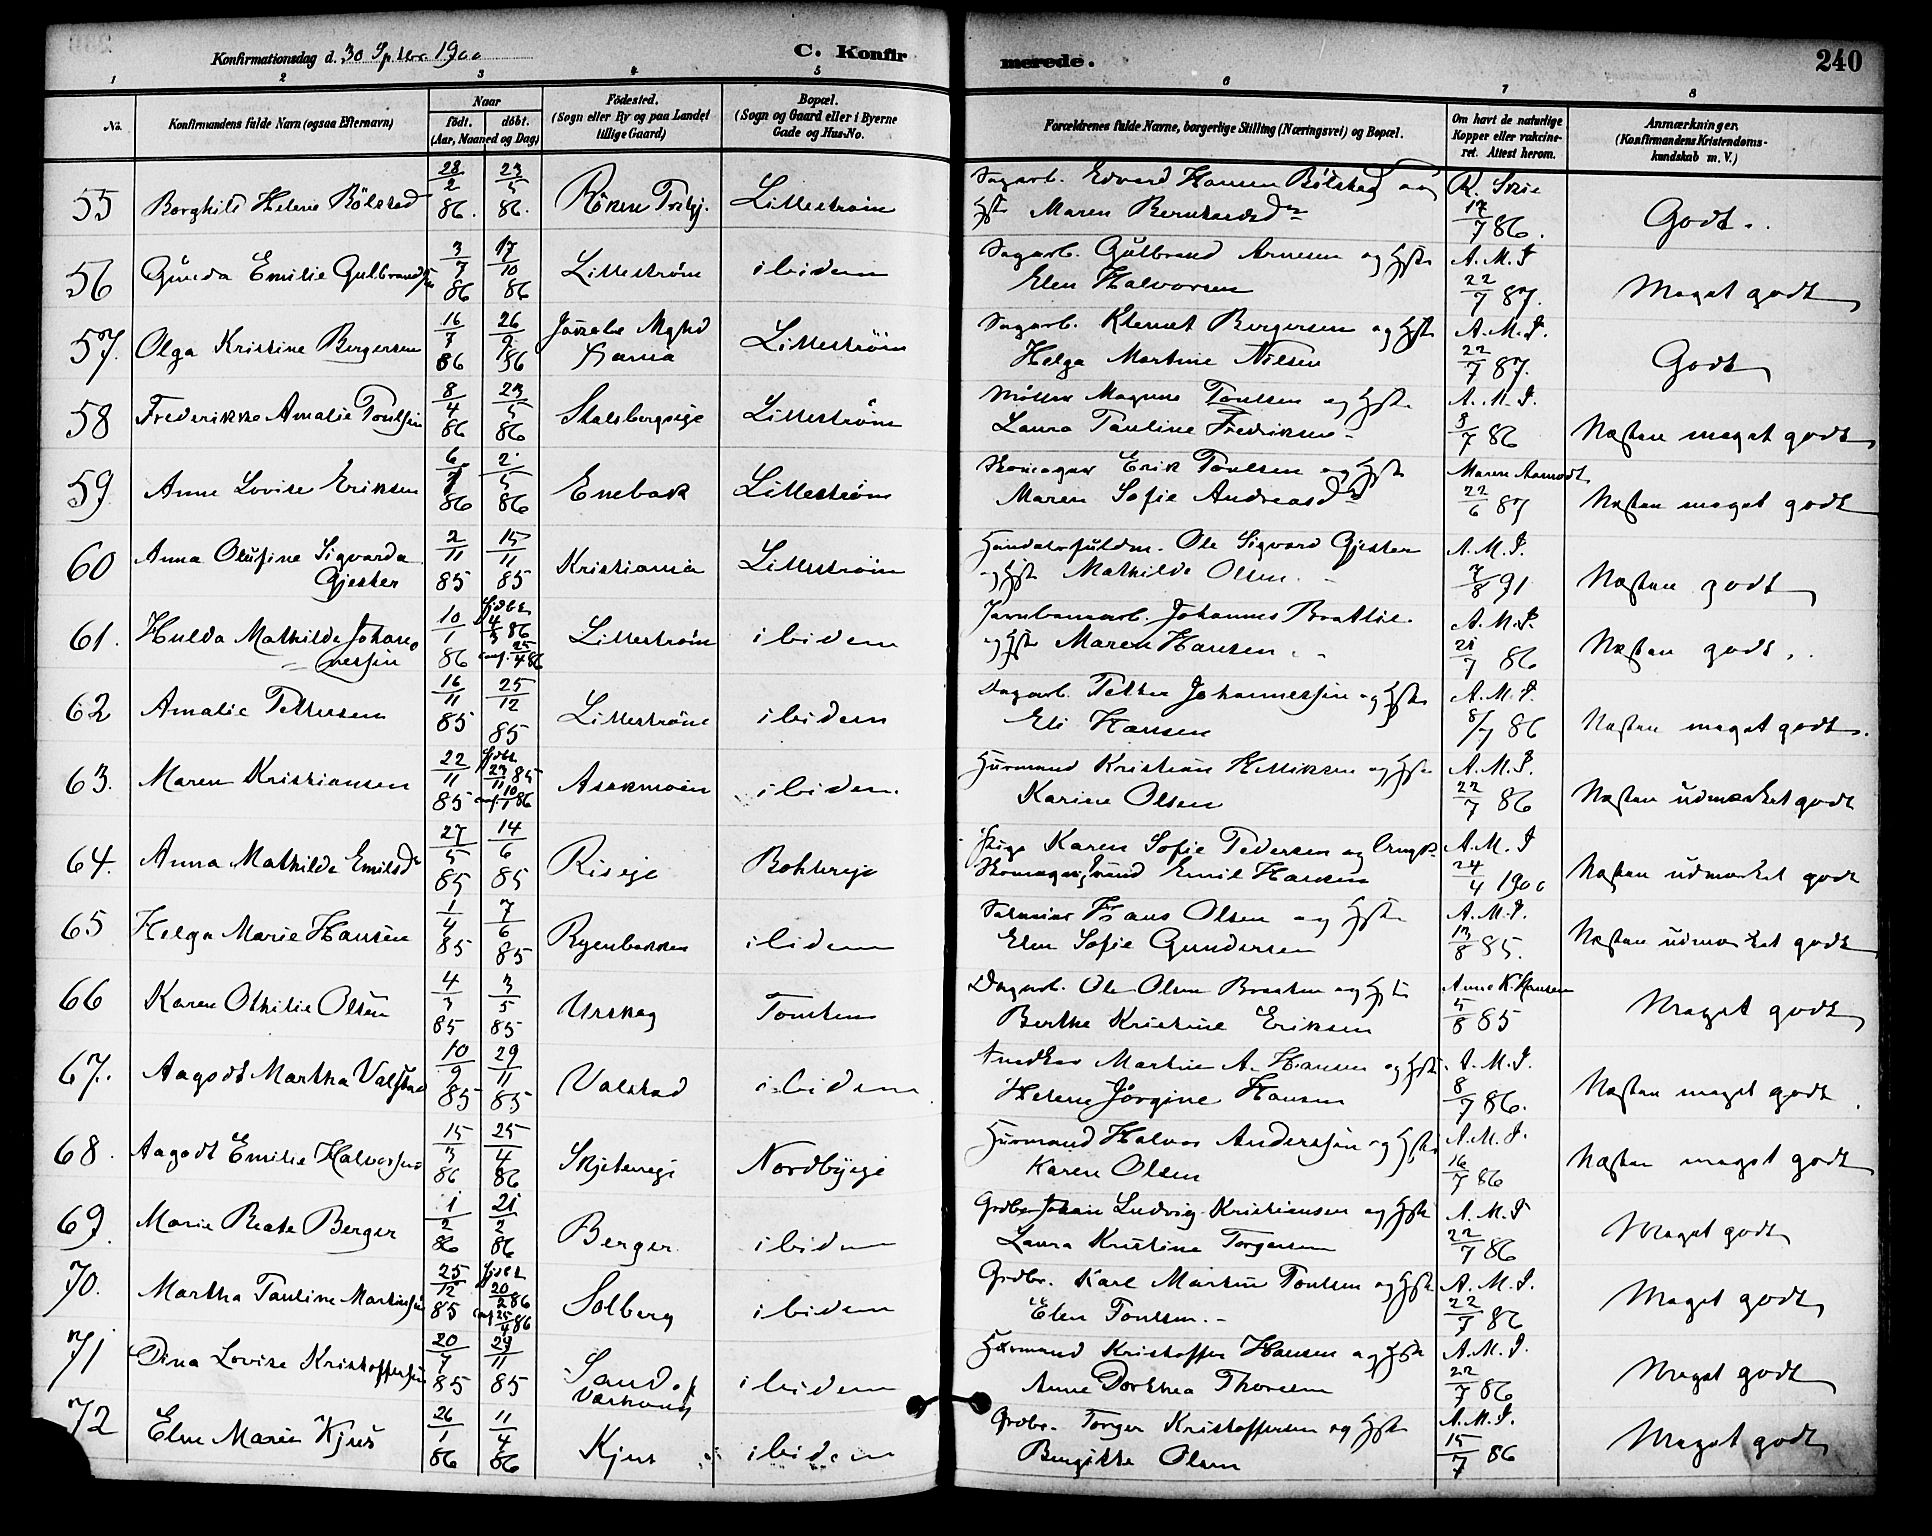 Konfirmationsdag d. 30 Sptbr. 1900
C. Konfirmerede.
240
1 2 3 4 5 6 7 8
No.
Konfirmandens fulde Navn (ogsaa Efternavn)
Naar
født. døbt.
(Aar, Maaned og Dag)
Fødested.
(Sogn eller By og paa Landet tillige Gaard)
Bopæl.
(Sogn og Gaard eller i Byerne Gade og Hus-No.
Forældrenes fulde Navne, borgerlige Stilling (Næringsvei) og Bopæl.
Om havt de naturlige Kopper eller vakcineret. Attest herom.
Anmærkninger.
(Konfirmandens Kristendomskundskab m. V.)
55 Borghild Helene Bölstad 28/2 86. 23/5 86. Lilleström
Sagarb. Edvard Hansen Bölstad og
Hst Maren Bernhardsdr
17/7 86. Godt.
56 Gunda Emilie Gulbrandsen 3/7 86 17/10 86 Lilleström ibidem
Sagarb. Gulbrand Arnesen og Hst
Elen Halvorsen
A.M.J. 22/7 87. Meget godt
57. Olga Kristine Bergersen 16/7 86 26/9 86 Lilleström
Sagarb. Klemet Bergersen og Hst
Helga Martine Nilsen
A.M.J. 22/7 87. Godt
58 Frederikke Amalie Poulsen 8/4 86 23/5 86 Stalsbergeie Lilleström
Möller Magnus Poulsen og Hst.
Laura Pauline Fredriksen
A.M.J. 8/7 86 Næsten meget godt
59 Anne Lovise Eriksen 86 2/5 86 Enebak Lilleström
Skomager Erik Poulsen og Hst
Maren Sofie Andreasdr
Maren Aamodt 22/6 87 Næsten meget godt
60 Anna Olufine Sigvarda
Gjester 2/11 85 15/11 85 Kristiania Lilleström
Handelsfuldm. Ole Sigvard Gjester
og Hst Mathilde Olsen.
A.M.J. 7/8 91 Næsten godt
61. Hulda Mathilde Johan
nessen 10/1 86 86 conf. 25/4 86 Lilleström ibidem
Jernbanearb. Johannes Braatlie
og Hst Maren Hansen.
A.M.J. 21/7 86 Næsten godt.
62 Amalie Pettersen 16/11 85 25/12 85 Lilleström ibidem
Dagarb. Petter Johannessen og Hst
Eli Hansen
A.M.J. 8/7 86 Næsten meget godt.
63. Maren Kristiansen 22/11 85 23/11 85 conf. 10/1 86 Asakmoen ibidem.
Husmand Kristian Helliksen og Hst
Karine Olsen
A.M.J. 22/7 86 Næsten udmærket godt
64. Anna Mathilde Emilsdr 27/5 85 14/6 85 Riseie Bohlereie
Pige Karen Sofie Pedersen og Ungk.
Skomagersvend Emil Hansen
A.M.J. 24/4 1900 Næsten udmærket godt
65 Helga Marie Hansen 1/4 85 7/6 85 Ryenbakken ibidem
Hans Olsen og Hst.
Elen Sofie Gundersen
A.M.J. 13/8 85. Næsten udmærket godt
66 Karen Othilie Olsen 4/3 85 3/5 85 Urskog
Dagarb. Ole Olsen Braaten og Hst
Berthe Kristine Eriksen
Anne K. Hansen 5/8 85 Meget godt
67. Aagodt Martha Valstad 10/9 85 29/11 85 Valstad ibidem
Snedker Martin A. Hansen og Hst.
Helene Jörgine Hansen
A.M.J. 8/7 86. Næsten meget godt
68. Aagodt Emilie Halvorsen 15/3 86 25/4 86 Skjetneeie Nordbyeie
Husmand Halvor Anderssen og Hst
Karen Olsen
A.M.J. 16/7 86 Næsten meget godt
69. Marie Beate Berger 1/2 86 21/2 86 Berger ibidem
Grdbr. Johan Ludvig Kristiansen og Hst
Laura Kristine Torgersen
A.M.J 22/7 86 Meget godt
70. Martha Pauline Martinsen 25/12 85 20/2 86 conf 25/4 86 Solberg ibidem
Grdbr. Karl Martin Poulsen og Hst
Elen Poulsen.
A.M.J. 22/7 86 Meget godt
71 Dina Lovise Kristoffersen 20/7 85 29/11 85 Sand ibidem
Husmand Kristoffer Hansen og Hst
Anne Dorthea Thoresen
A.M.J. 22/7 86 Meget godt
72 Elen Marie Kjus 26/1 86 11/4 86 Kjus ibidem
Grdbr. Torger Kristoffersen og Hst
Birgitte Olsen
A.M.J. 15/7 86 Meget godt